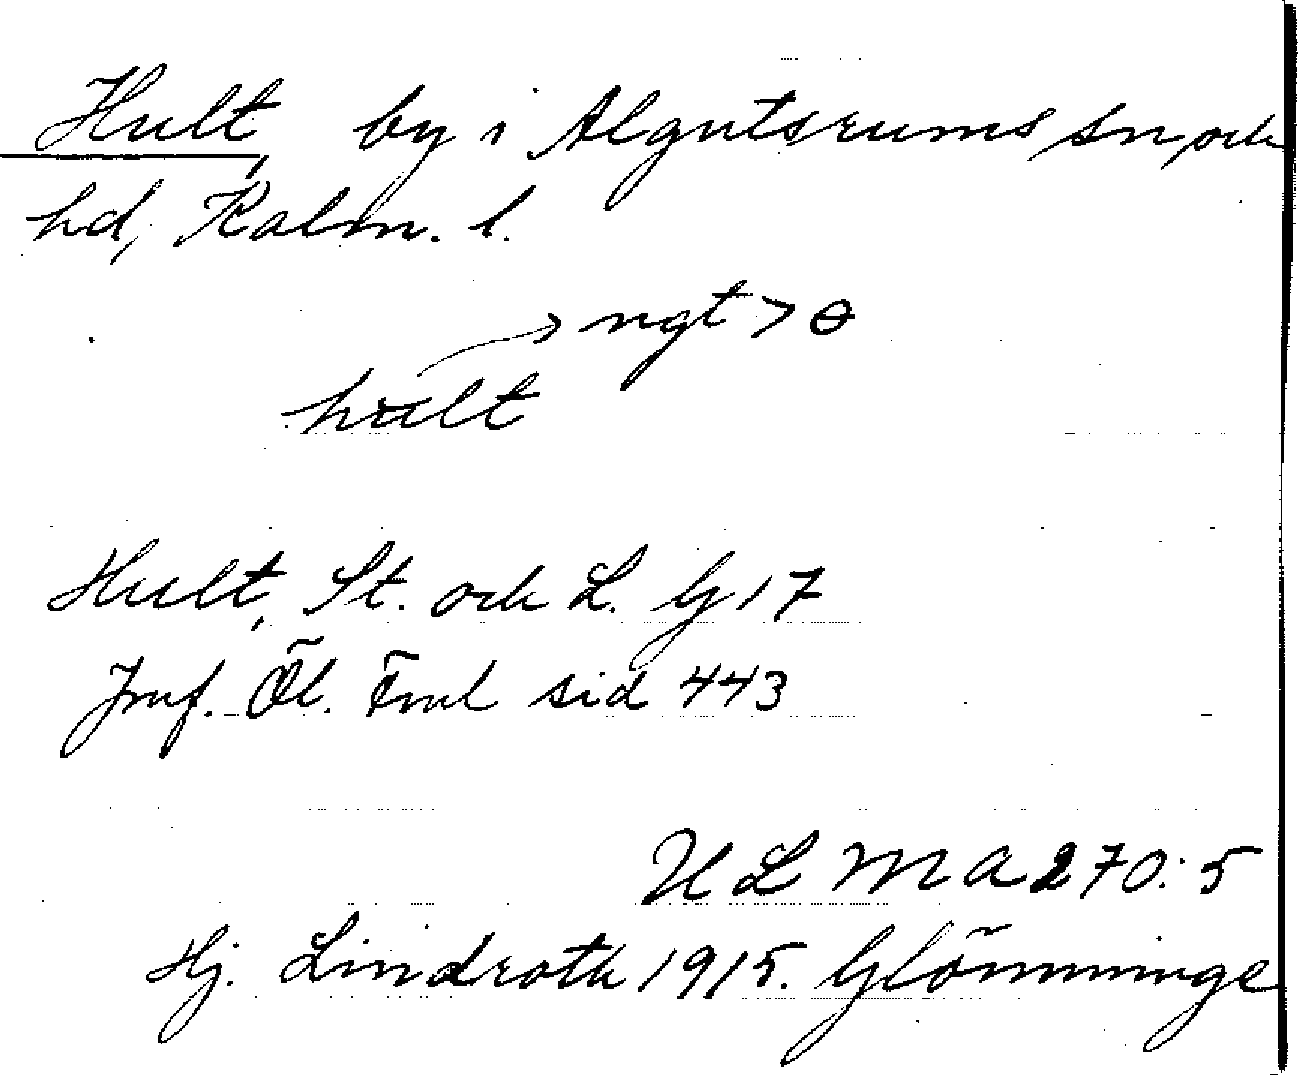 Hult, by i Algutsrums sn, och
hd, Kalm. l.
ngt > ɵ
hult
Hult, St. och L. G 17
Jmf. Öl. Fml sid 443
ULMA 270:5
Hj. Lindroth 1915. Glömminge